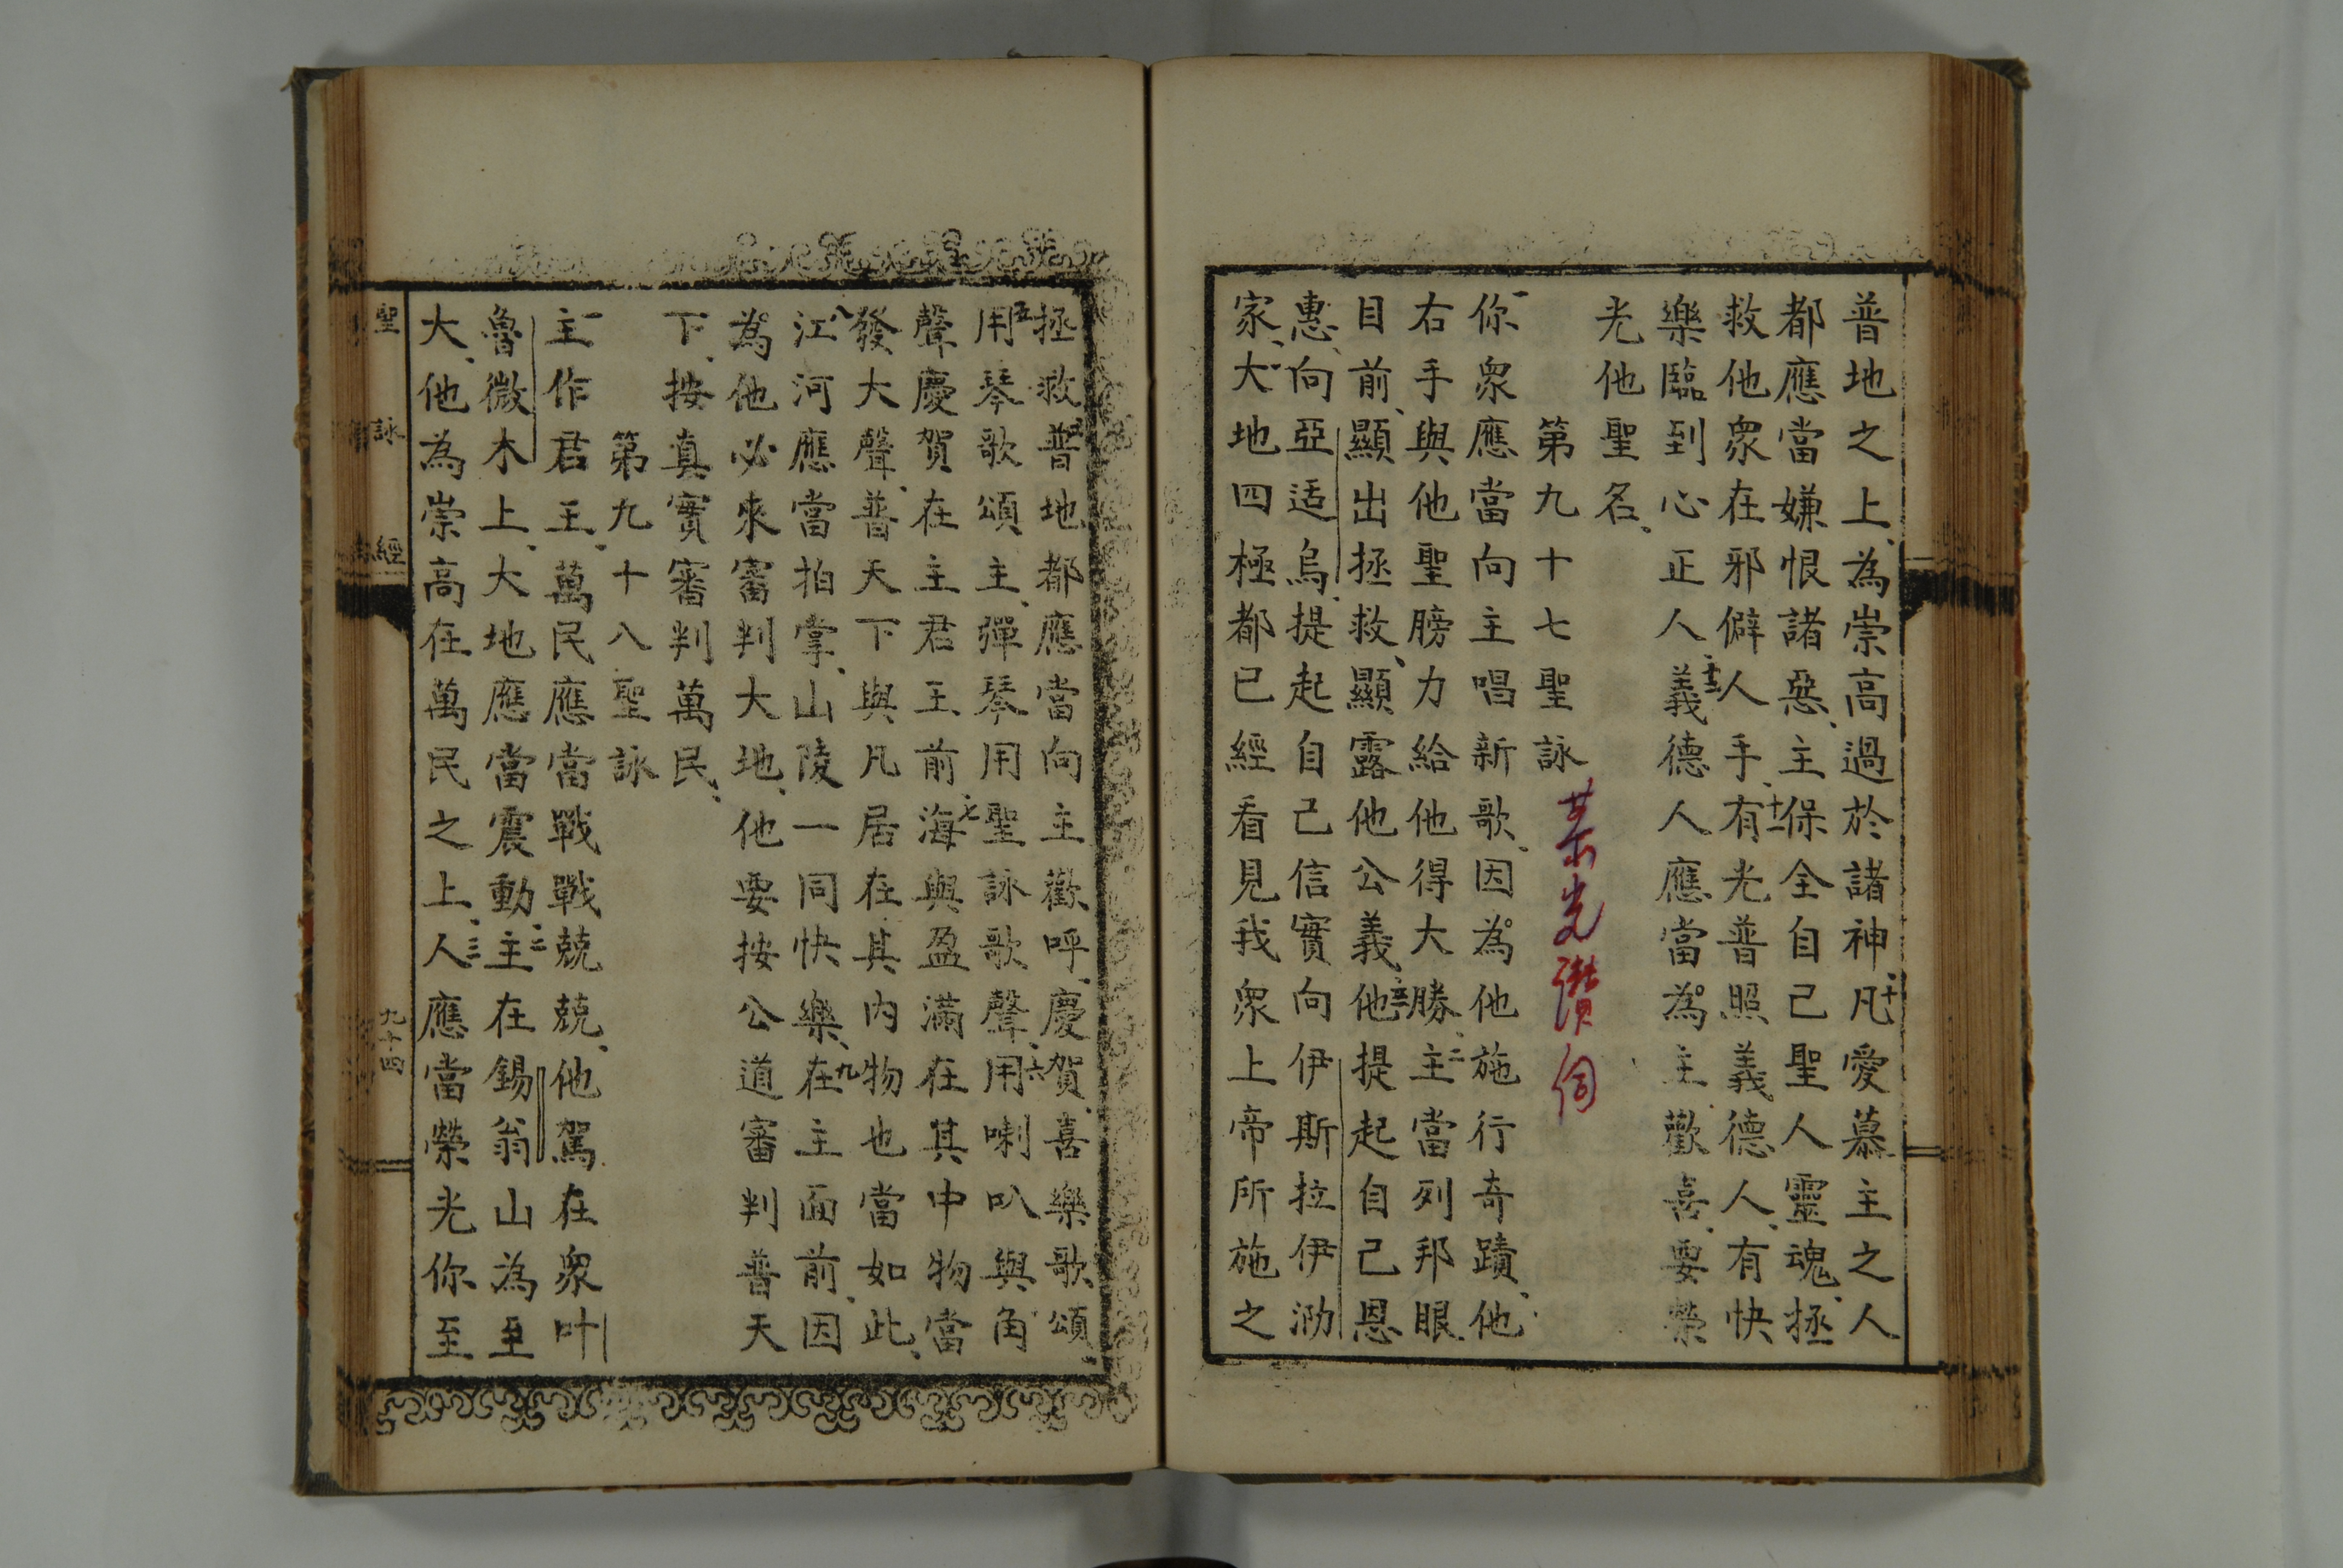 普地之上、為崇高過於諸神、十凡愛慕主之人
都應當嫌恨諸惡、主保全自己聖人靈魂、拯
救他衆在邪僻人手、十一有光普照義德人、有快
樂臨到心正人、十二義德人應當為主歡喜、要榮
光他聖名、
第九十七聖詠
榮光讚伺
一你衆應當向主唱新歌、因為他施行奇蹟、他
右手與他聖膀力給他得大勝、二主當列邦眼
目前、顯出拯救、顯露他公義、三他提起自己恩
惠、向亞适烏、提起自己信實向伊斯拉伊泐
家、大地四極都已經看見我衆上帝所施之
拯救、四普地都應當向主歡呼、慶賀、喜樂歌頌、
五用琴歌頌主、彈琴用聖詠歌聲、六用喇叭與角
聲慶賀在主君王前、七海與盈滿在其中物當
發大聲、普天下與凡居在其內物也當如此、
八江河應當拍掌、山陵一同快樂、九在主面前、因
為他必來審判大地、他要按公道審判普天
下、按真實審判萬民、
第九十八聖詠
一主作君王、萬民應當戰戰兢兢、他駕在衆叶
魯微木上、大地應當震動、二主在錫翁山為至
大、他為崇高在萬民之上、三人應當榮光你至
聖詠經
九十四